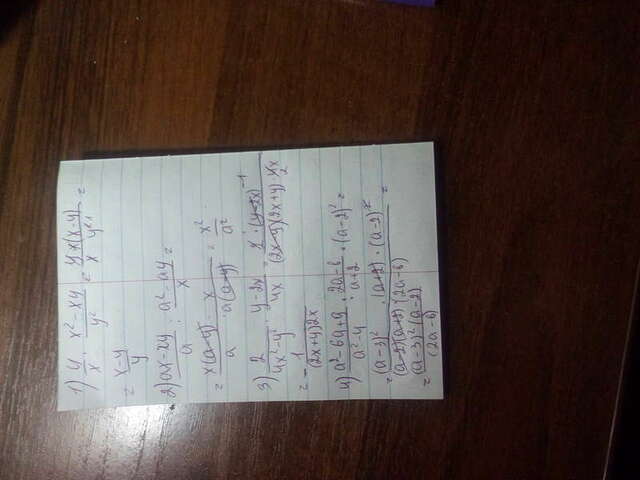 1) y/x · (x² - xy)/y² = (y x(x-y))/(x y²¹) =
= (x-y)/y
2) (ax - xy)/a : (a² - ay)/x =
= (x(a-y) · x)/(a · a(a-y)) = x²/a²
3) 2/(4x² - y²) · (y - 2x)/4x = (2 · (y-2x)⁻¹)/((2x-y)(2x+y) · 4x)
2
= - 1/((2x+y)2x)
4) (a² - 6a + 9)/(a² - 4) : (2a - 6)/(a+2) · (a-2)² =
= ((a-3)² · (a+2) · (a-2)²)/((a-2)(a+2) · (2a-6)) =
= ((a-3)² (a-2))/(2a-6)